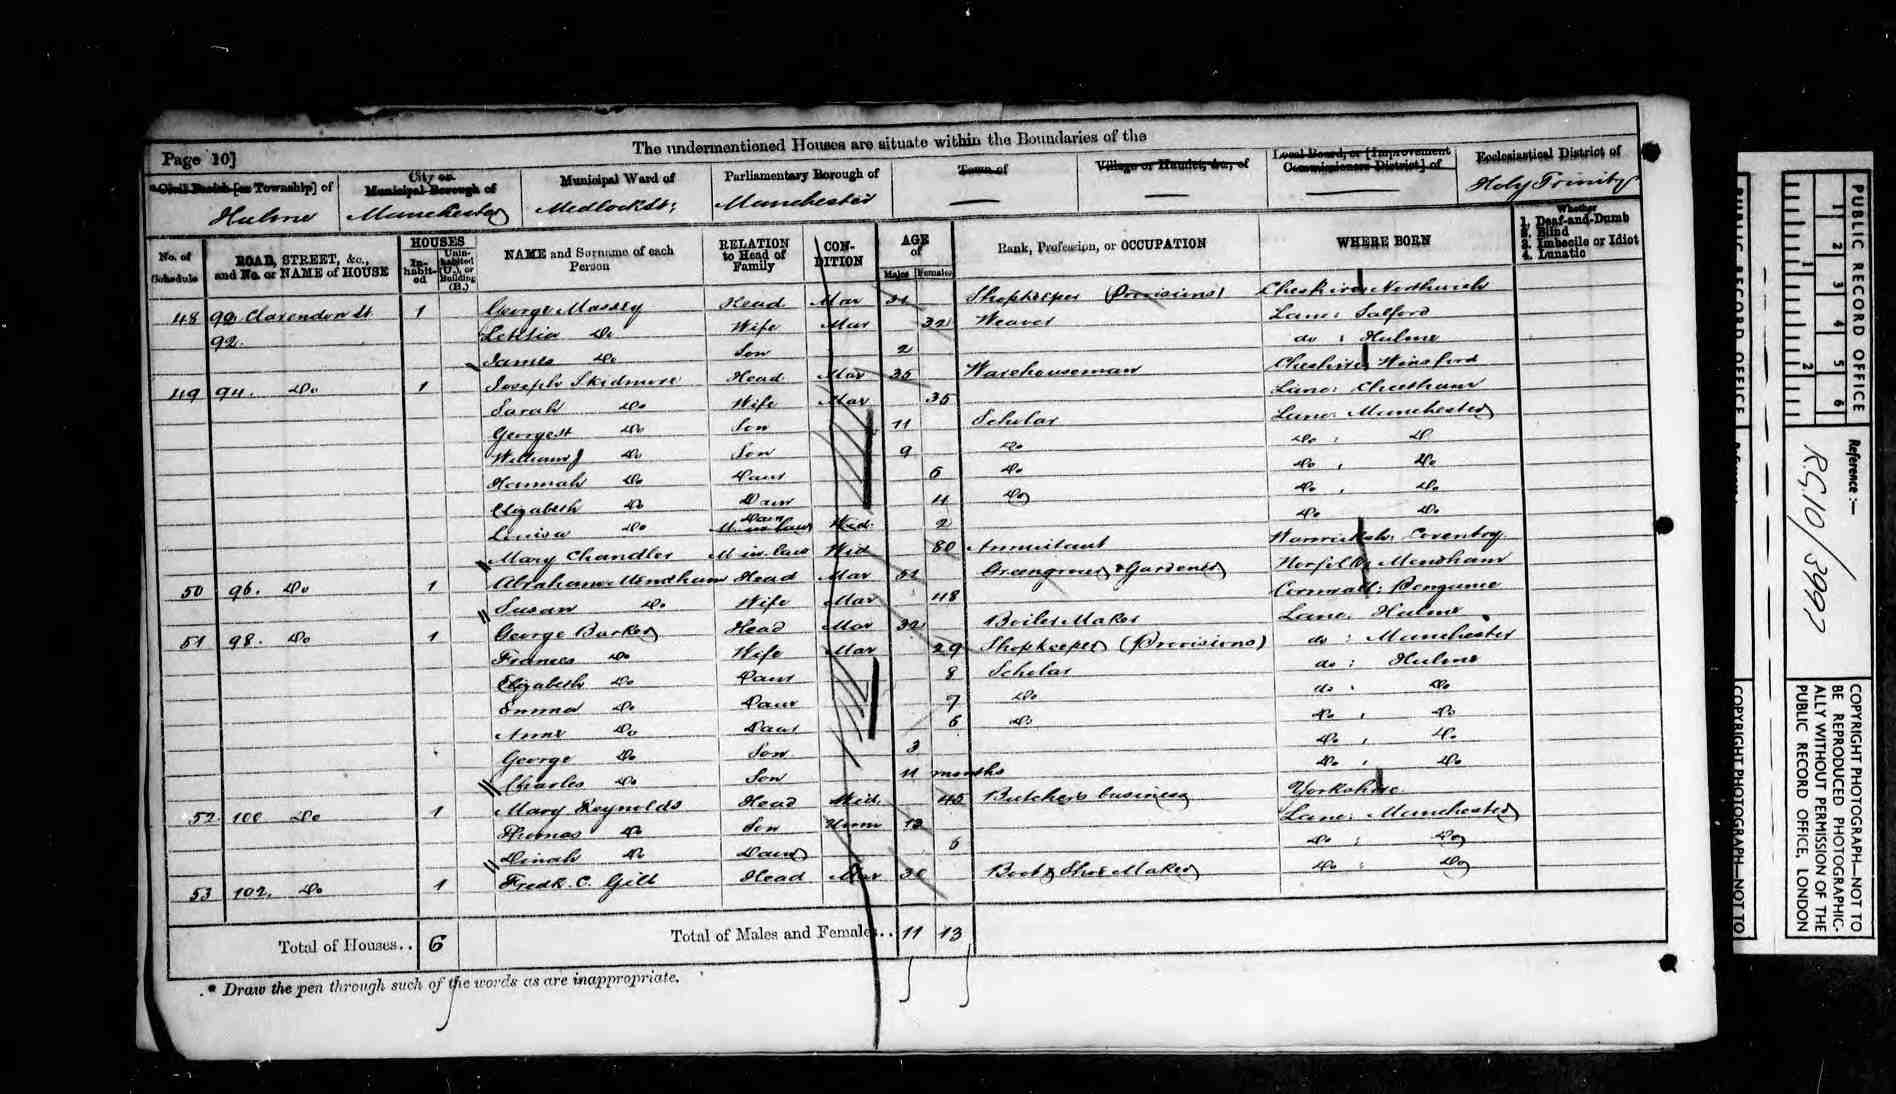 The undermentioned Houses are situate within the Boundaries of the
Page 10]
Civil Parish [or Township] of
City or Municipal Borough of
Municipal Ward of
Parliamentary Borough of
Town of
Village or Hamlet, &c., of
Local Board, or [Improvement Commissioners District] of
Ecclesiastical District of
Hulme
Manchester
Medlock St;
Manchester
Holy Trinity
No. of Schedule
ROAD, STREET, &c., and No. or NAME of HOUSE
HOUSES
In-habit-ed
Unin-habited (U.), or Building (B.)
NAME and Surname of each Person
RELATION to Head of Family
CON-DITION
AGE of
Males
Females
Rank, Profession, or OCCUPATION
WHERE BORN
Whether
1. Deaf-and-Dumb
2. Blind
3. Imbecile or Idiot
4. Lunatic
48 92 Clarendon St 1 George Massey Head Mar 31 Shopkeeper (Provisions) Cheshire Northwich
92. Letitia Do Wife Mar 32 Weaver Lanc: Salford
James Do Son 2 do : Hulme
49 94. Do 1 Joseph Skidmore Head Mar 35 Warehouseman Cheshire Winsford
Sarah Do Wife Mar 35 Lanc: Cheetham
George H Do Son 11 Scholar Lanc: Manchester
William J Do Son 9 Do Do : D
Hannah Do Daur 6 Do Do , Do
Elizabeth Do Daur 4 Do Do , Do
Louisa Do Daur 2 Do Do
Mary Chandler M in law Wid 80 Annuitant Warwicksh: Coventry
50 96. Do 1 Abraham Mendham Head Mar Greengrocer & Gardener Norfolk Mendham
Susan Do Wife Mar 48 Cornwall:
51 98. Do 1 George Barker Head Mar 32 Boiler Maker Lanc: Hulme
Frances Do Wife Mar 29 Shopkeeper (Provisions) do : Manchester
Elizabeth Do Daur 8 Scholar do : Hulme
Emma Do Daur 7 Do do , Do
Anne Do Daur 6 Do Do , Do
George Do Son 3 Do , Do
Charles Do Son 11 months Do , Do
52 100 Do 1 Mary Reynolds Head Wid 45 Butchers business Yorkshire
Thomas Do Son Unm 13 Lanc: Manchester
Dinah Do Daur 6 Do : Do
53 102. Do 1 Fredk. C. Gill Head Mar 30 Boot & Shoe Maker Do : Do
Total of Houses.. 6 Total of Males and Females.. 11 13
* Draw the pen through such of the words as are inappropriate.
PUBLIC RECORD OFFICE
1 2 3 4 5 6
1 2
Reference :-
RG10/3997
COPYRIGHT PHOTOGRAPH—NOT TO
BE REPRODUCED PHOTOGRAPHIC-
ALLY WITHOUT PERMISSION OF THE
PUBLIC RECORD OFFICE, LONDON
PUBLIC RECORD OFFICE
COPYRIGHT PHOTOGRAPH—NOT TO